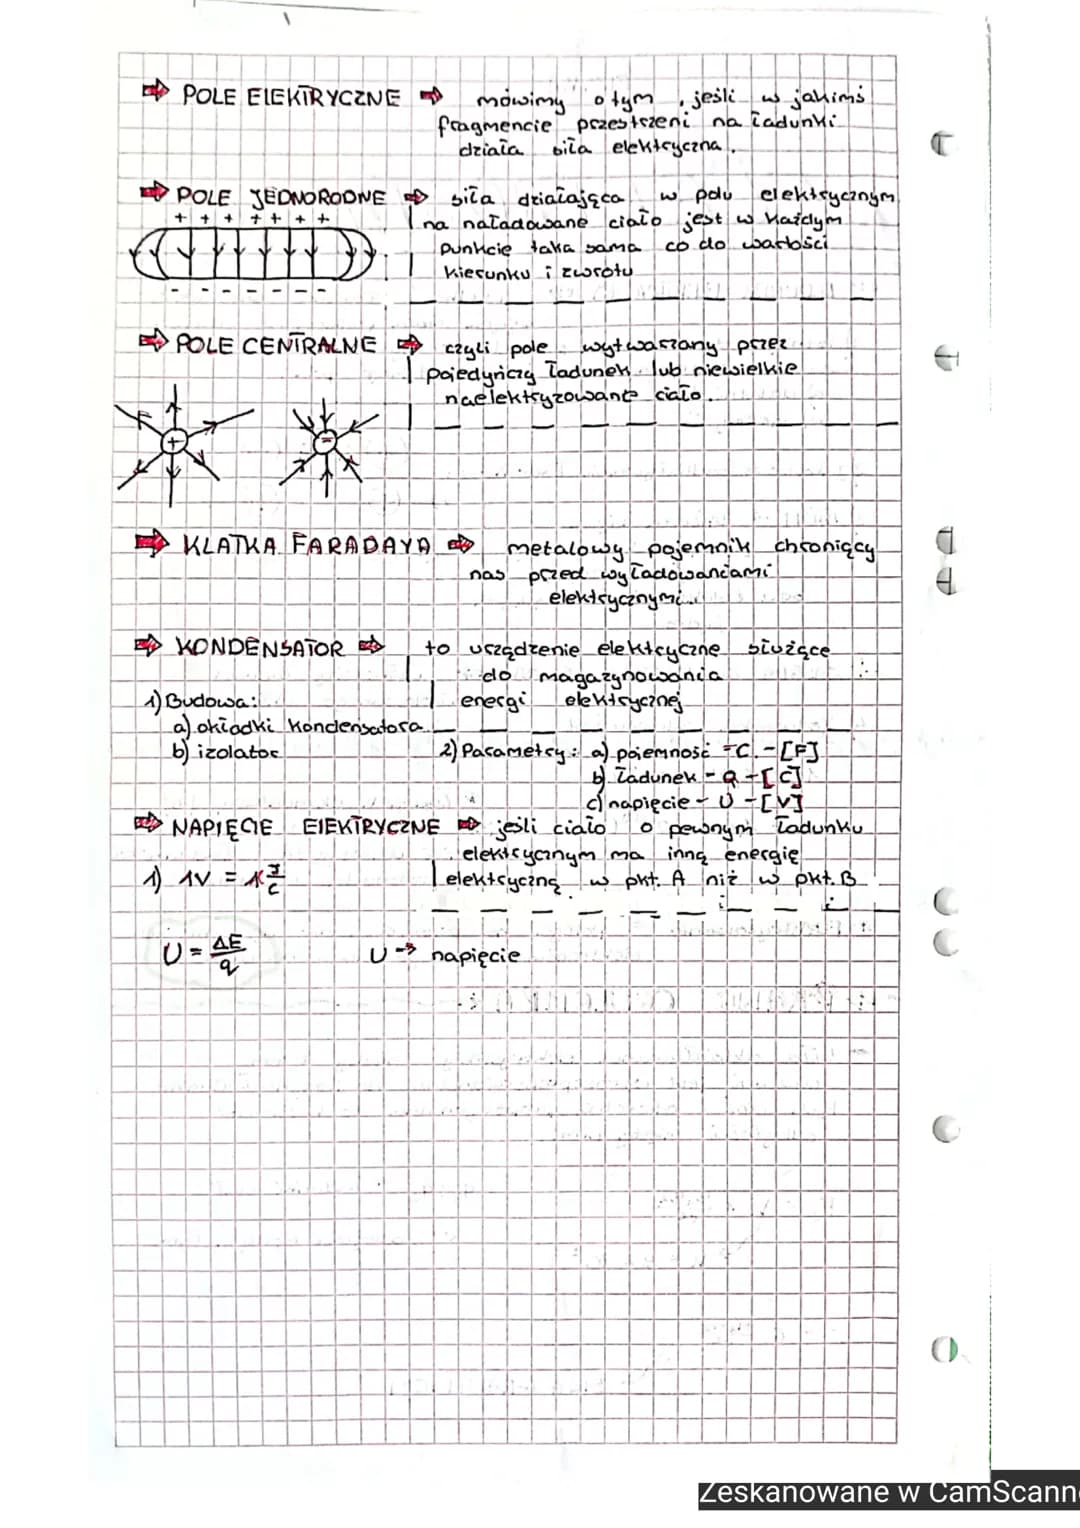 ⇒ POLE ELEKTRYCZNE ⇒ mówimy o tym, jeśli w jakimś
fragmencie przestrzeni na ładunki
działa siła elektryczna.
⇒ POLE JEDNORODNE ⇒ siła działająca w polu elektrycznym
+ + + + + + +
na naładowane ciało jest w każdym
punkcie taka sama co do wartości
kierunku i zwrotu
- - - - - - -
⇒ POLE CENTRALNE ⇒ czyli pole wytwarzany przez
pojedyńczy ładunek lub niewielkie
naelektryzowane ciało.
+ -
⇒ KLATKA FARADAYA ⇒ metalowy pojemnik chroniący
nas przed wyładowaniami
elektrycznymi.
⇒ KONDENSATOR ⇒ to urządzenie elektryczne służące
do magazynowania
energi elektrycznej
1) Budowa:
a) okładki kondensatora
b) izolator
2) Parametry: a) pojemność - C - [F]
b) ładunek - Q - [C]
c) napięcie - U - [V]
⇒ NAPIĘCIE ElEKTRYCZNE ⇒ jeśli ciało o pewnym ładunku
elektrycznym ma inną energię
elektryczną w pkt. A niż w pkt. B
1) 1V = 1 J/C
U = ΔE/q U → napięcie
Zeskanowane w CamScann